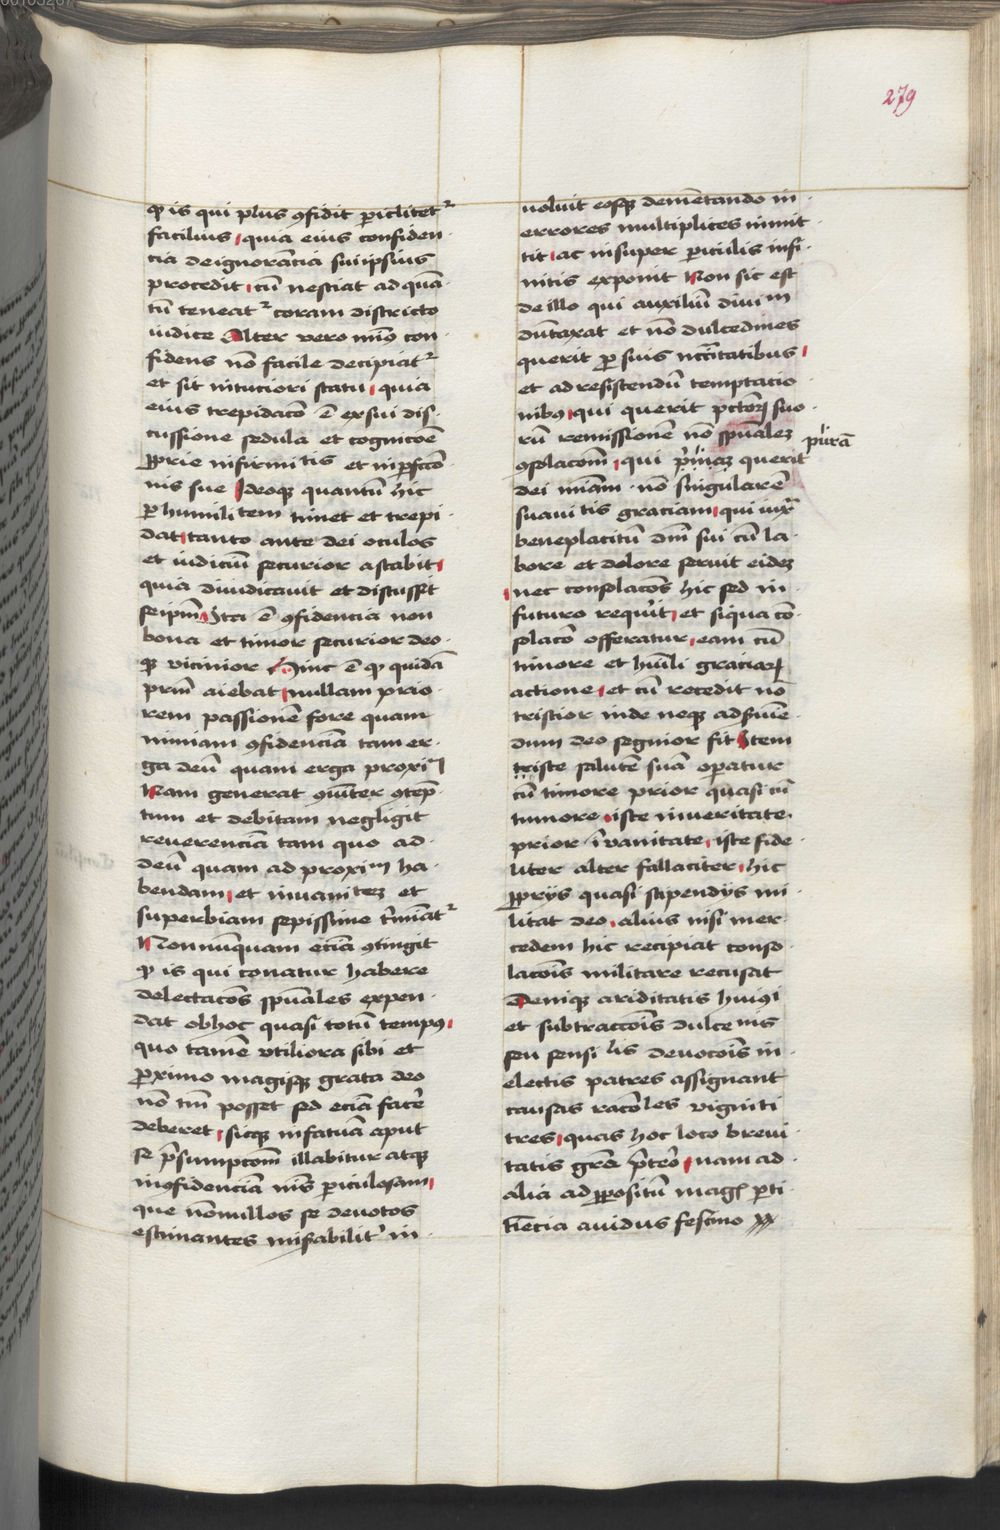 279
qͥ is qui plus ꝯfidit ꝑiclitetᷣ
facilius quia eius confiden-
cia de ignorancia sui ipsius
procedit cū nesciat ad quā-
tū teneatᷣ coram districto
iudice Alter vero min9 con-
fidens nō facile decipiatᷣ
et sit in tuciori statu quia
eius trepidacō ē ex sui dis-
cussione sedula et cognicōe
ꝓprie infirmitis et inꝑfcc̄o-
nis sue Ideoqꝫ quantū hic
ꝑ humilitem timet et trepi-
dat tanto ante dei oculos
et iudiciū securior astabit
quia diiudicauit et discussit
seipm̄ Ita ē ꝯfidencia non
bona et timor securior deo-
qꝫ vicinior Hinc ē qͥ quidā
prm̄ aiebat nullam prio-
rem passionē fore quam
nimiam ꝯfidenciā tam er-
ga deū quam erga proximͫ
Nam generat ꝯiūter ꝯtēp-
tum et debitam negligit
reuerenciā tam quo ad
deū quam ad proximͫ ha-
bendam et in uanitteꝫ et
superbiam sepissime t̄minatᷣ
Nonnūquam eciā ꝯtingit
qͥ is qui conatur habere
delectacōs spūales expen-
dat ob hoc quasi totū tempꝰ
quo tamē vtiliora sibi et
ꝓximo magisqꝫ grata deo
nō tm̄ posset sed eciā facē
deberet sicqꝫ infatuā aput
se p̄sumpcōm illabitur atqꝫ
in ꝯfidenciā nīs ꝑiculosam
que nōnullos se deuotos
estimantes mirabilit᷑ in
uoluit eosqꝫ demētando in
errores multiplices inmit-
tit ac insuper ꝑiculis infi-
nitis exponit Non sic est
de illo qui auxiliū diuiͫ
dūtaxat et nō dulcedines
querit ꝓ suis nccītatibus
et ad resistendū temptacio-
nibꝰ qui querit pctōꝝ suo-
rū remissionē nō spūaleꝫ
ꝯsolacōm qui p̄maꝫ querit
plurā
dei miam nō singularē
suauitis graciam qui iuxᷓ
beneplacitū dnī sui cū la-
bore et dolore seruit eideꝫ
nec consolacōs hic sed in
futuro requīt et siqua cō-
solacō offeratur eam cū
timore et hūili graciaꝝ
actione et cū recedit nō
tristior inde neqꝫ ad seruiē-
dum deo segnior fit Item
iste salutē suā oꝑatur
cū timore prior quasi cū
tumore iste in veritate
prior ī vanitate iste fide-
liter alter fallaciter hic
ꝓprijs quasi stipendijs mi-
litat deo alius nisi mer-
cedem hic recipiat conso-
lacōis militare recusat
Deniqꝫ ariditatis huiꝰi
et subtraccōis dulcenis
seu sensilis deuocōis in
electis patres assignant
causas racōles viginti
tres quas hoc loco breui-
tatis grā p̄teᷣo nam ad
alia ad ꝓpositū magꝭ ꝑti-
nēcia auidus festino